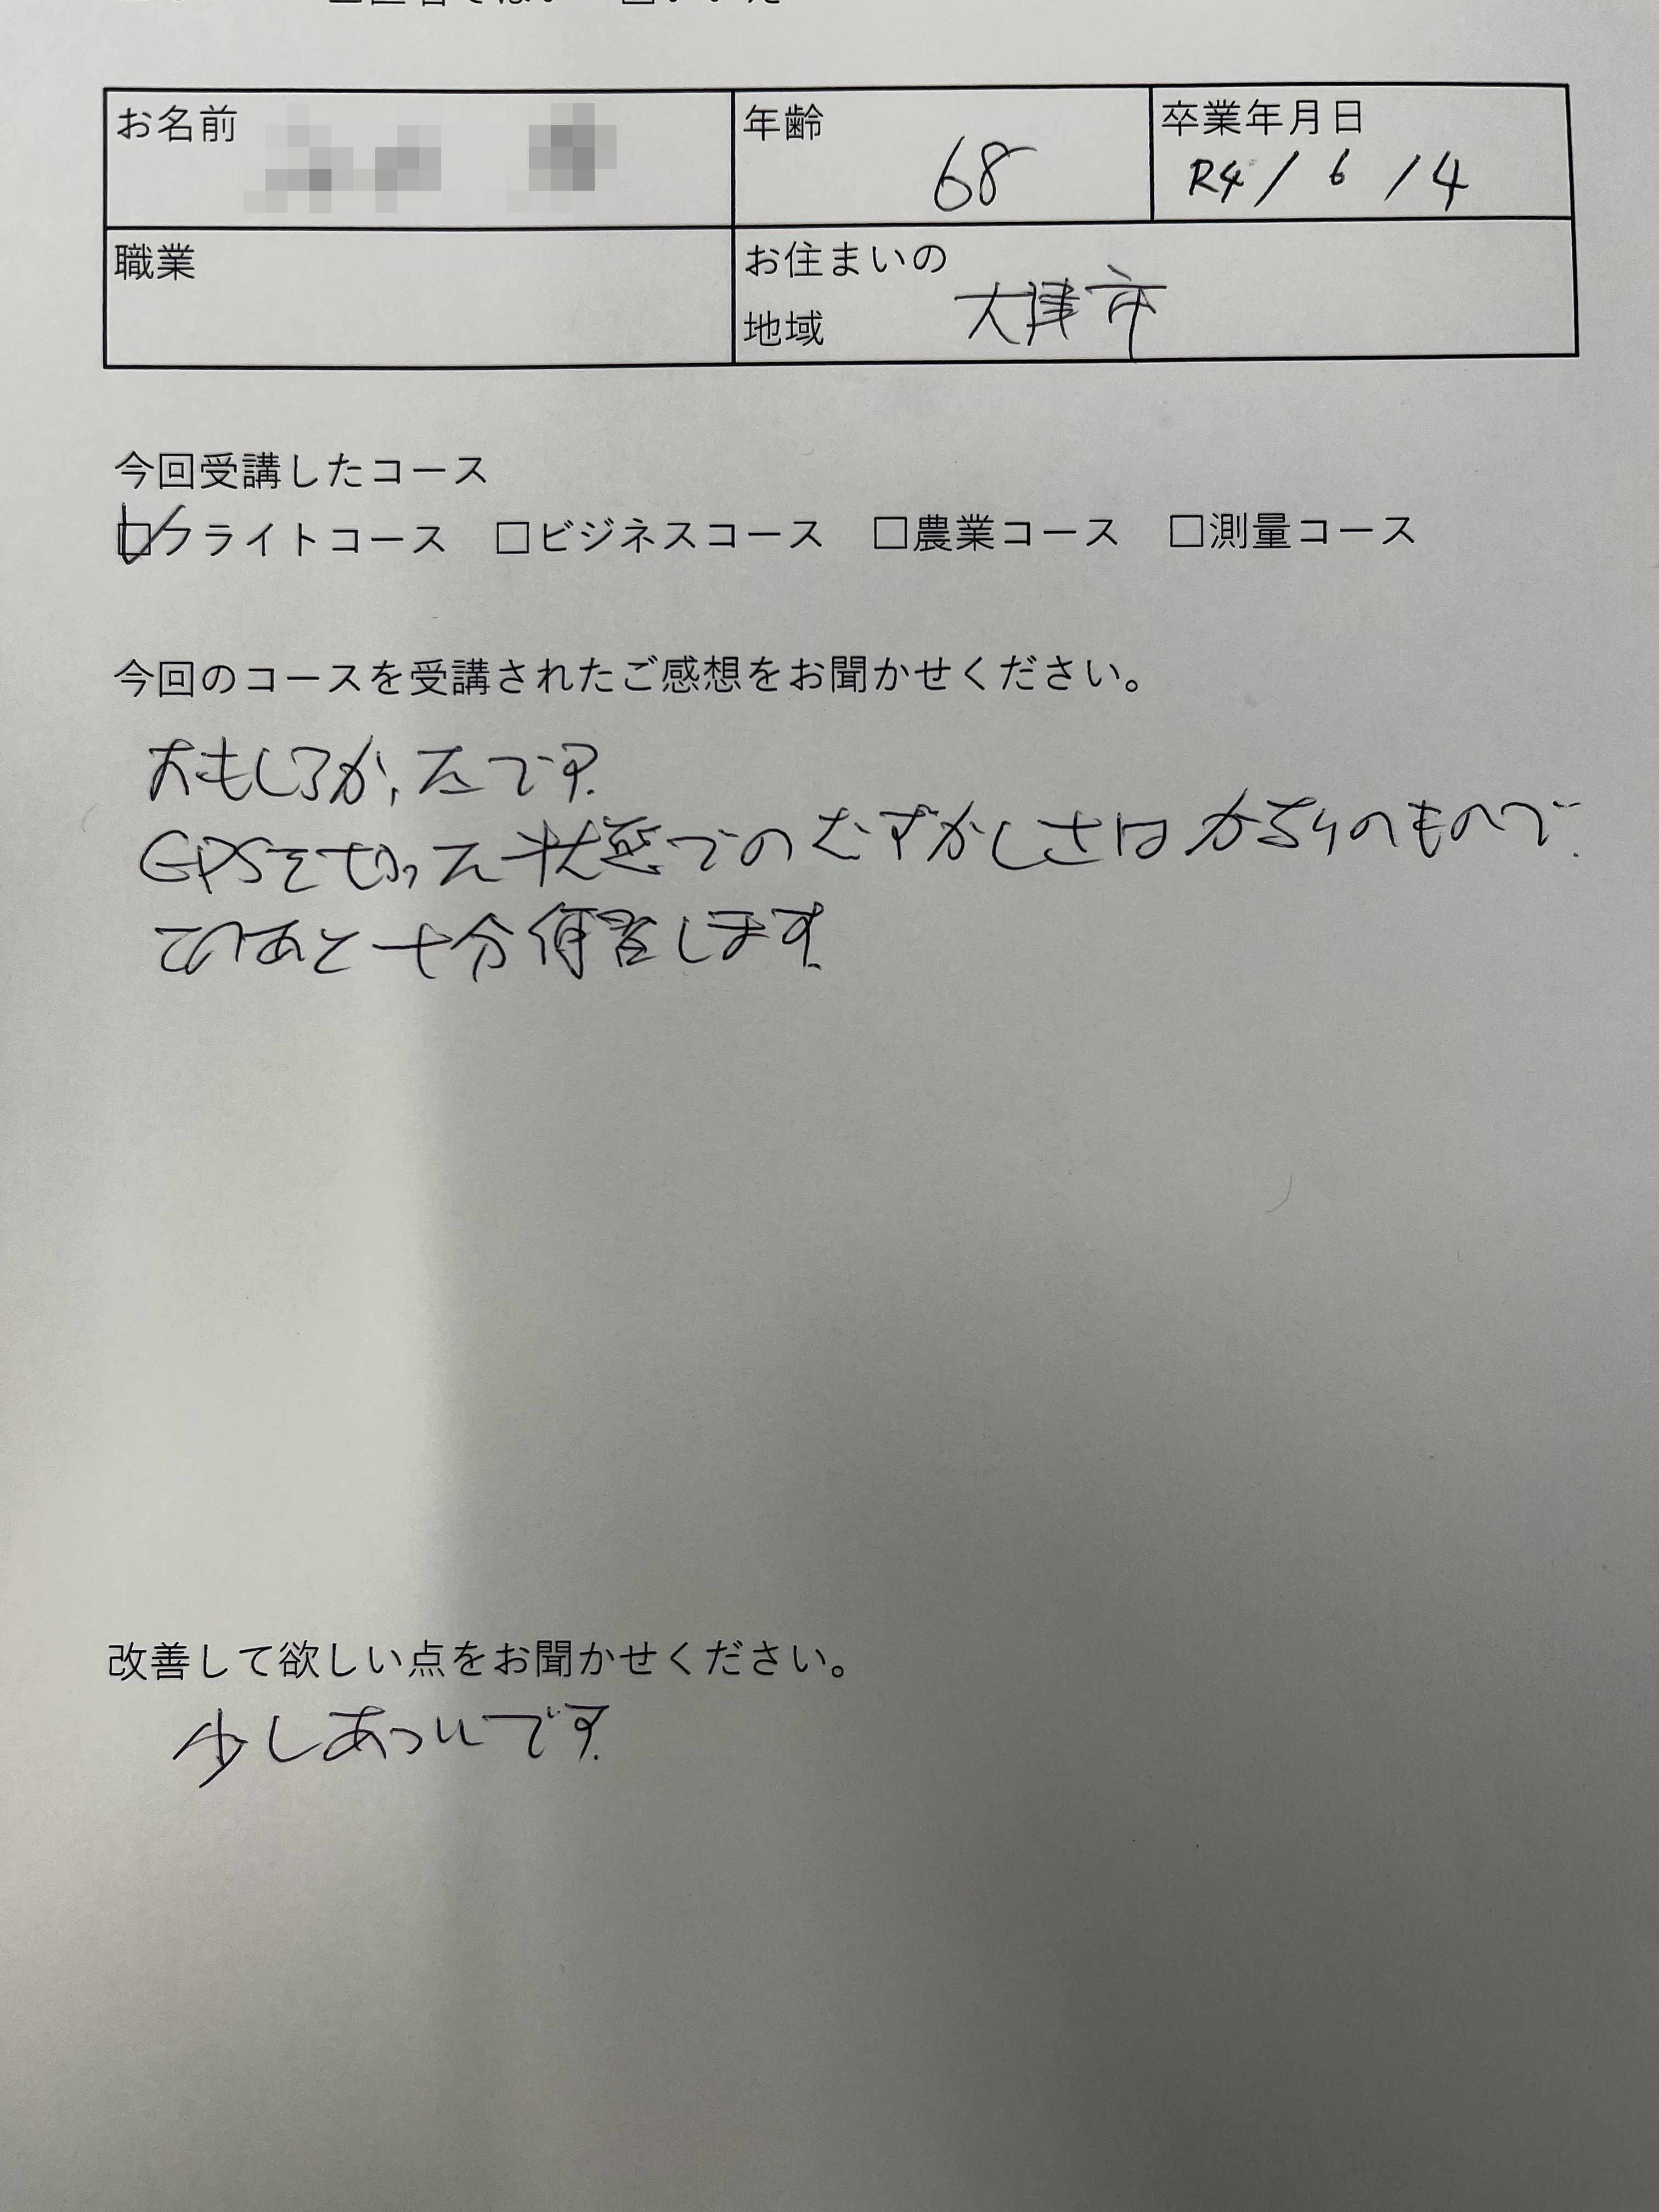 お名前
年齢
68
卒業年月日
R4 / 6 / 4
職業
お住まいの
地域
大津市
今回受講したコース
☑フライトコース □ビジネスコース □農業コース □測量コース
今回のコースを受講されたご感想をお聞かせください。
おもしろかったです.
GPSを切った状態でのむずかしさはかなりのもので.
このあと十分復習します.
改善して欲しい点をお聞かせください。
少しあついです.